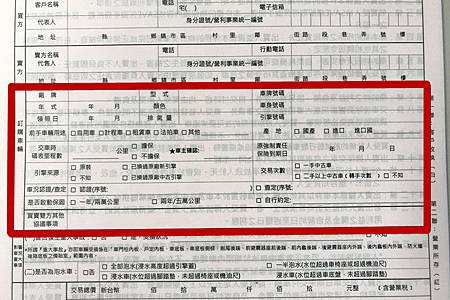 客戶名稱 電話 宅( )
電子信箱
代表人 身分證號/營利事業統一編號
地址 縣 鄉鎮市區 村里 鄰 街路 段 巷 弄 號 樓
賣方
賣方名稱 電話 行動電話
代售人 身分證號/營利事業統一編號
地址 縣 鄉鎮市區 村里 鄰 街路 段 巷 弄 號 樓
訂購車輛
廠牌 型式 車牌號碼
年式 年 月 顏色 車身號碼
領照日 年 月 排氣量 引擎號碼
前手車輛用途 □自用車 □計程車 □租賃車 □法拍車 □其他 產地 □國產 □進口 進口國
交車時碼表里程數 公里 □擔保 □不擔保 ★車主確認: 原強制責任保險到期日 年 月 日
引擎來源 □原裝 □已換過原廠新引擎 □不知 □已換過原廠中古引擎
交易次數 □一手中古車 □二手以上中古車(轉手次數 ) □不知
車況認證/查定 □認證(序號: ) □查定(序號:
是否啟動保固 □一年/兩萬公里 □兩年/五萬公里 □自行約定:
買賣雙方其他協議事項
(二)是否為泡水車: □否 □全部泡水(浸水高度超過引擎蓋) □一半泡水(水位超過車身座椅或超過機油尺)
□浸水車(水位超過腳踏墊、未超過椅座或機油尺) □浸水車(水位超過車底盤、未超過腳踏墊)
交易總價 新台幣 佰 拾 萬 仟 佰 拾 元整 (含營業稅)